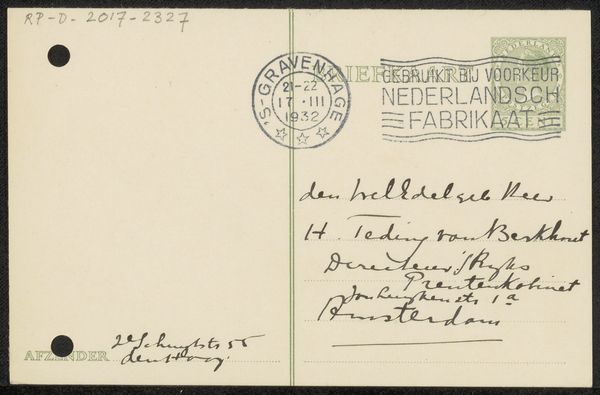 RP-D-2017-2327
'S-GRAVENHAGE
21-22
17 .III
1932
BRIEFKAART
GEBRUIKT BIJ VOORKEUR
NEDERLANDSCH
FABRIKAAT
NEDERLAND
den WelEdelgeb Heer
H. Teding van Berkhout
Directeur 's Ryks
Prentenkabinet
1a
Amsterdam
AFZENDER
2e Schuytstr 55
den Haag.